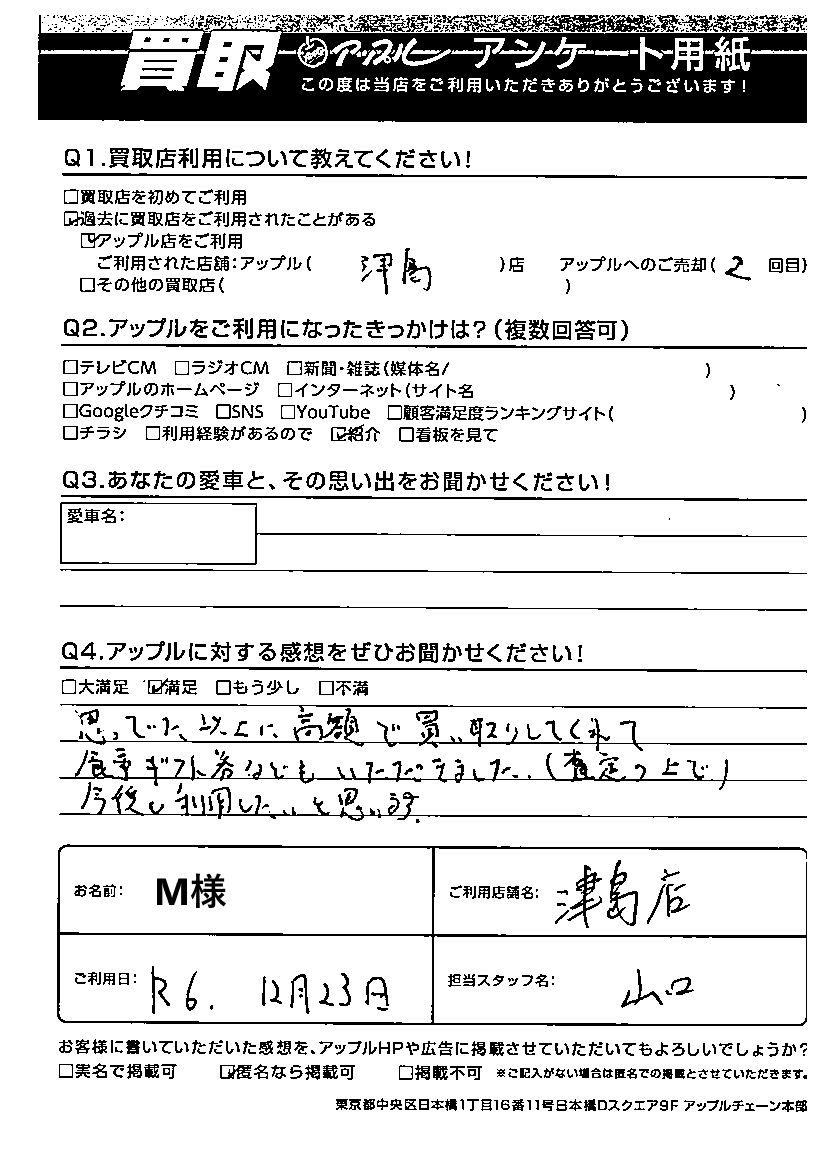 買取 アップル アンケート用紙
この度は当店をご利用いただきありがとうございます!
Q1.買取店利用について教えてください!
□買取店を初めてご利用
☑過去に買取店をご利用されたことがある
☑アップル店をご利用
ご利用された店舗:アップル( 津島 )店 アップルへのご売却( 2 回目)
□その他の買取店( )
Q2.アップルをご利用になったきっかけは?(複数回答可)
□テレビCM □ラジオCM □新聞・雑誌(媒体名/ )
□アップルのホームページ □インターネット(サイト名 )
□Googleクチコミ □SNS □YouTube □顧客満足度ランキングサイト( )
□チラシ □利用経験があるので ☑紹介 □看板を見て
Q3.あなたの愛車と、その思い出をお聞かせください!
愛車名:
Q4.アップルに対する感想をぜひお聞かせください!
□大満足 ☑満足 □もう少し □不満
思っていた以上に高額で買い取りしてくれて
食事ギフト券などもいただきました。(査定の上で)
今後も利用したいと思います。
お名前: M様 ご利用店舗名: 津島店
ご利用日: R6. 12月23日 担当スタッフ名: 山口
お客様に書いていただいた感想を、アップルHPや広告に掲載させていただいてもよろしいでしょうか?
□実名で掲載可 ☑匿名なら掲載可 □掲載不可 ※ご記入がない場合は匿名での掲載とさせていただきます。
東京都中央区日本橋1丁目16番11号日本橋Dスクエア9F アップルチェーン本部